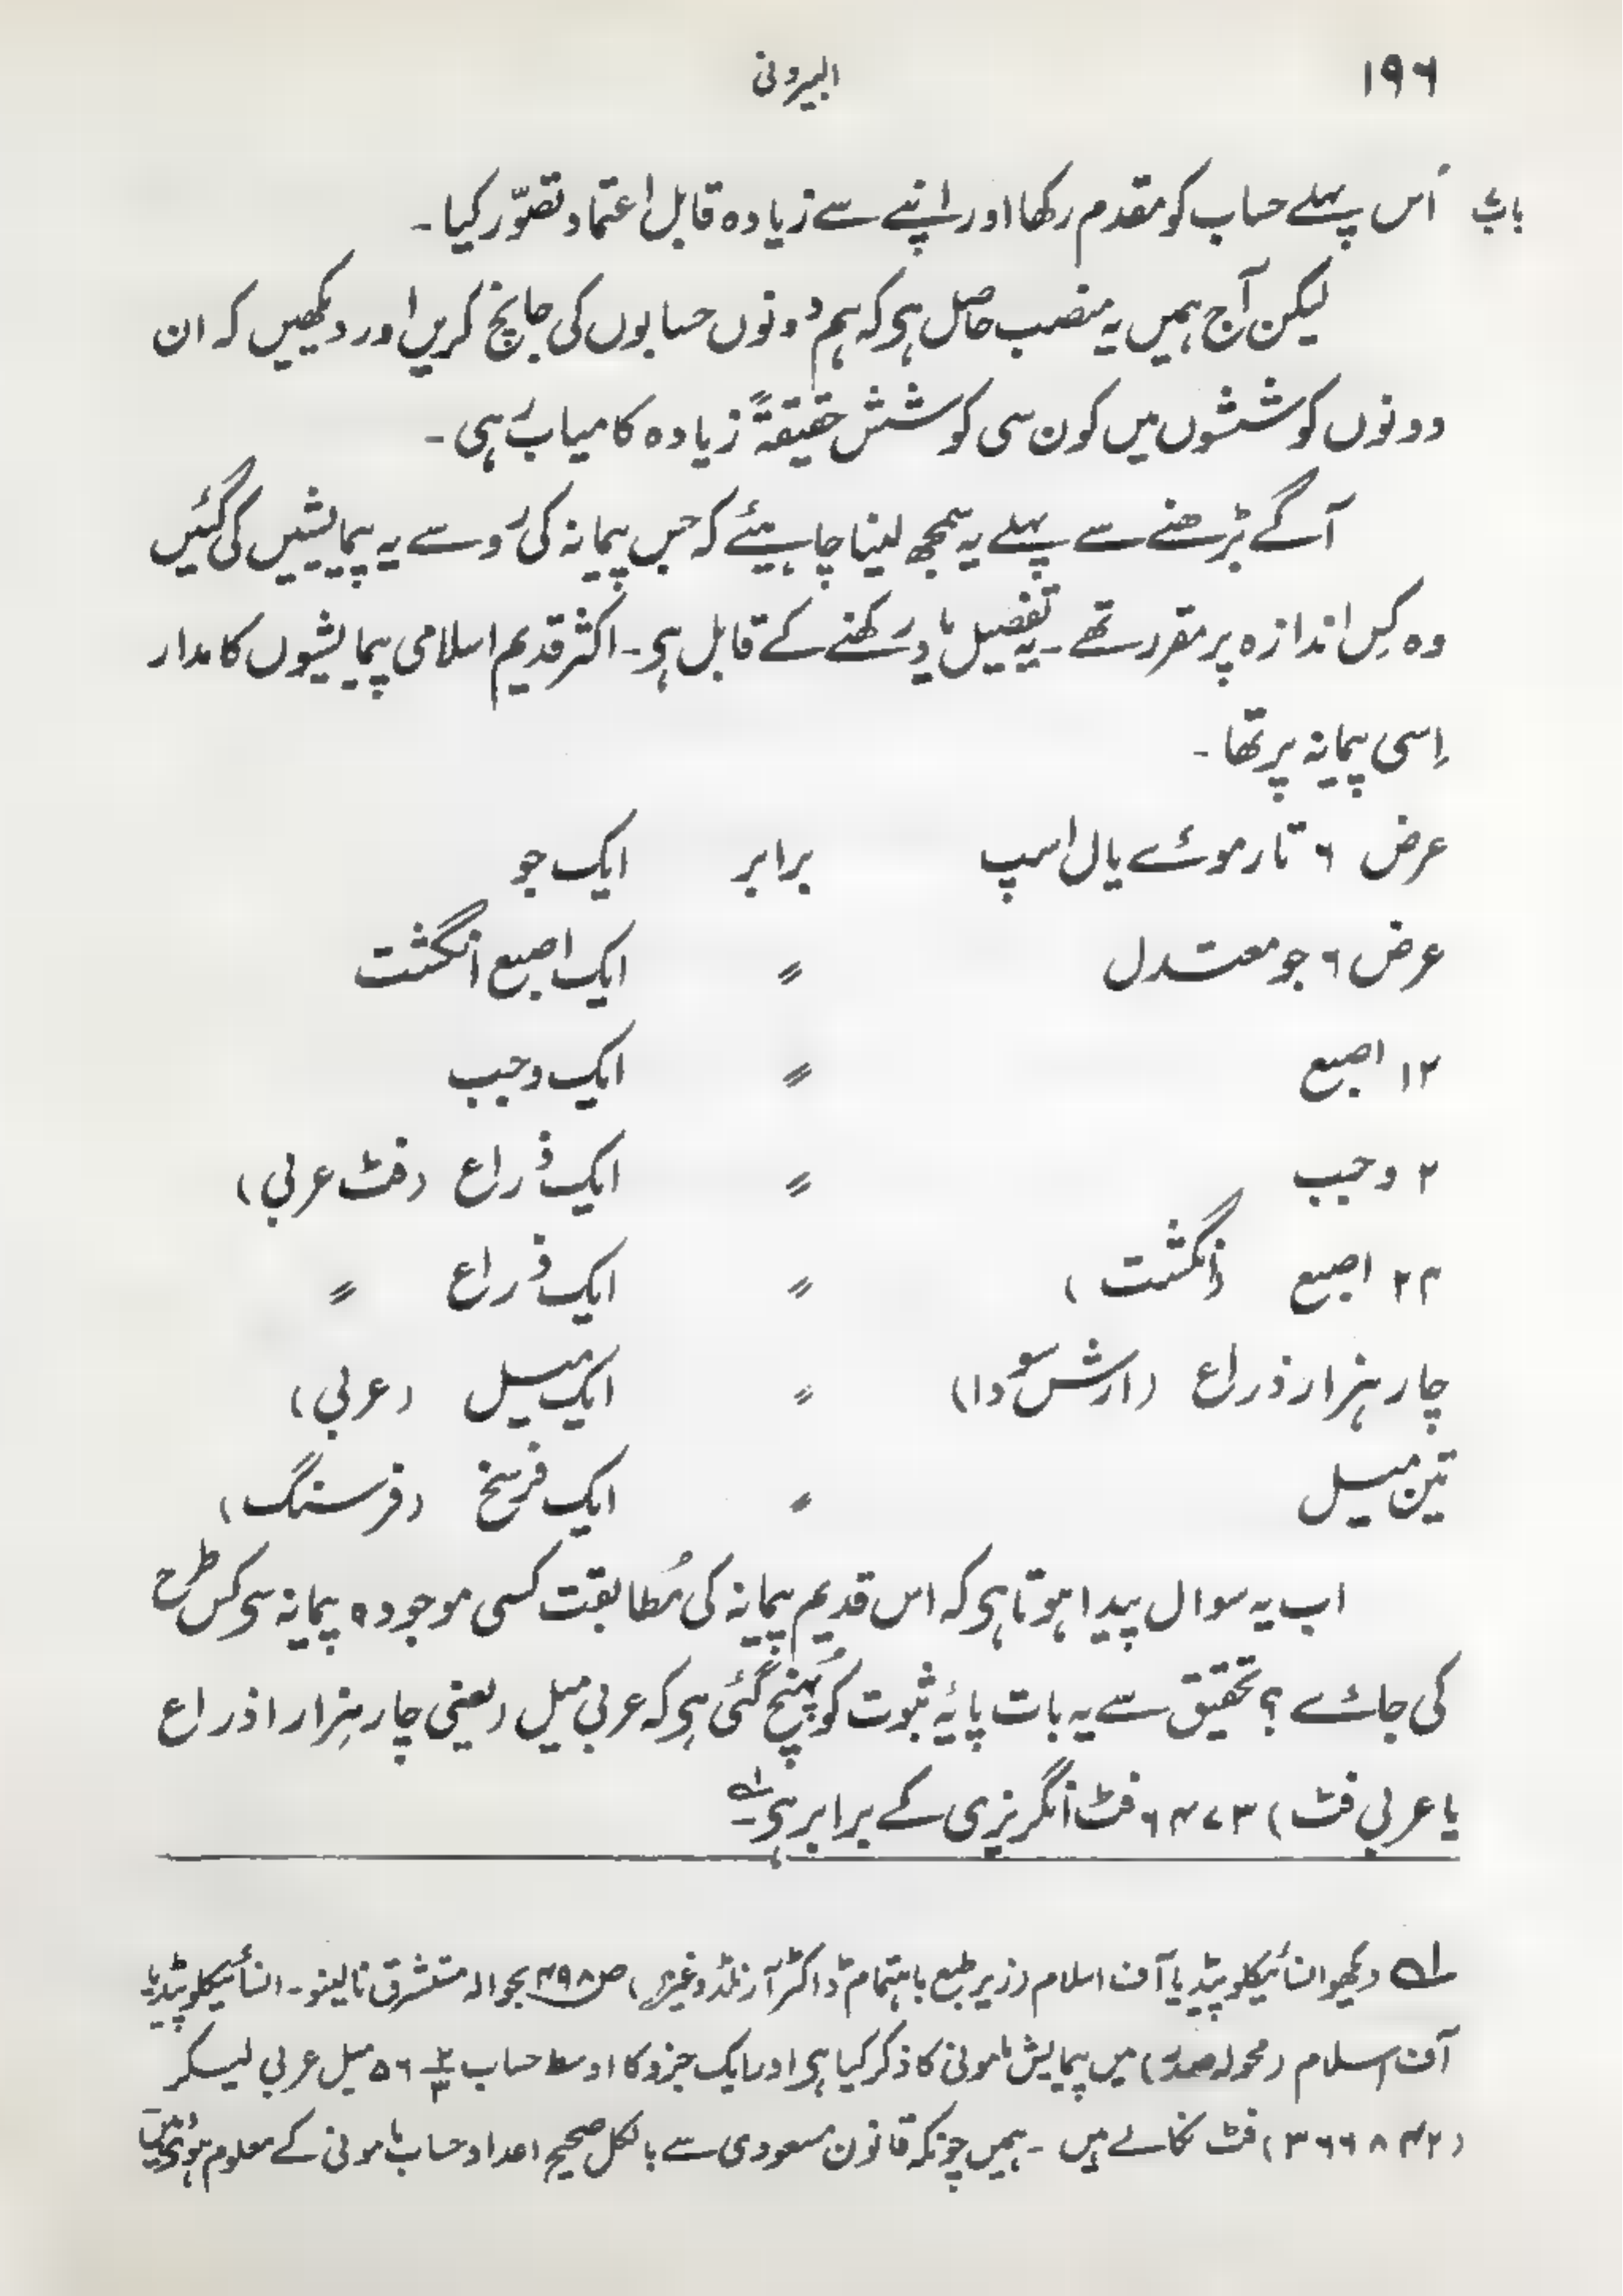 ۱۹۶ البیرونی
باب اُس پہلے حساب کو مقدم رکھا اور اپنے سے زیادہ قابل اعتماد تصوّر کیا۔
لیکن آج ہمیں یہ منصب حاصل ہی کہ ہم دونوں حسابوں کی جانچ کریں اور دیکھیں کہ ان
دونوں کوششوں میں کون سی کوشش حقیقۃً زیادہ کامیاب رہی۔
آگے بڑھنے سے پہلے یہ سمجھ لینا چاہیئے کہ جس پیمانہ کی رُو سے یہ پیمایشیں کی گئیں
وہ کِس اندازہ پر مقرر تھے۔ یہ تفصیل یاد رکھنے کے قابل ہی۔ اکثر قدیم اسلامی پیمایشوں کا مدار
اِسی پیمانہ پر تھا۔
عرض ۶ تار موئے یال اسپ برابر ایک جو
عرض ۶ جو معتدل 〃 ایک اصبع انگشت
۱۲ اصبع 〃 ایک وجب
۲ وجب 〃 ایک ذراع (فٹ عربی)
۲۴ اصبع (انگشت) 〃 ایک ذراع 〃
چار ہزار ذراع (ارش سودا) 〃 ایک میل (عربی)
تین میل 〃 ایک فرسخ (فرسنگ)
اب یہ سوال پیدا ہوتا ہی کہ اس قدیم پیمانہ کی مُطابقت کسی موجودہ پیمانہ سی کس طرح
کی جائے؟ تحقیق سے یہ بات پایۂ ثبوت کو پُہنچ گئی ہی کہ عربی میل (یعنی چار ہزار اذراع
یا عربی فٹ) ۶۴۷۳ فٹ انگریزی کے برابر ہی۔ لہ
لہ دیکھو انسائیکلوپیڈیا آف اسلام (زیر طبع باہتمام ڈاکٹر آرنلڈ وغیرہ) ص ۴۹۸ بحوالہ مستشرق نالینو۔ انسائیکلوپیڈیا
آف اسلام (محولہ صدر) میں پیمایش مامونی کا ذکر کیا ہی اور ایک جزو کا اوسط حساب ۵۶ ۲/۳ میل عربی لیکر
(۳۶۶۸۴۲) فٹ نکالے ہیں۔ ہمیں چونکہ قانون مسعودی سے بالکل صحیح اعداد حساب مامونی کے معلوم ہوئے ہیں